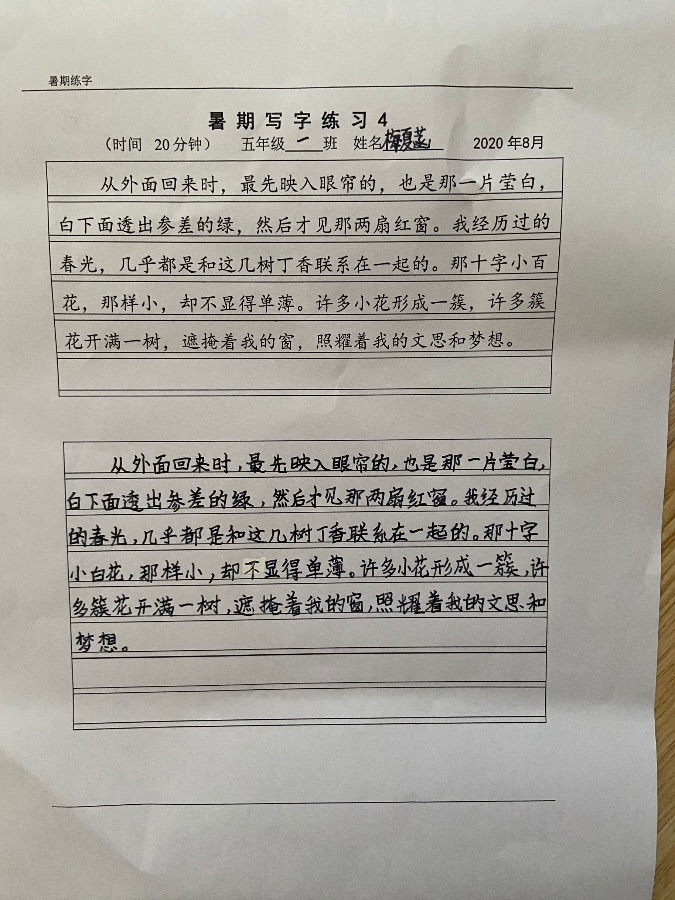 暑期练字
暑期写字练习4
（时间 20分钟） 五年级一班 姓名梅夏菡 2020年8月
从外面回来时，最先映入眼帘的，也是那一片莹白，
白下面透出参差的绿，然后才见那两扇红窗。我经历过的
春光，几乎都是和这几树丁香联系在一起的。那十字小百
花，那样小，却不显得单薄。许多小花形成一簇，许多簇
花开满一树，遮掩着我的窗，照耀着我的文思和梦想。
从外面回来时，最先映入眼帘的，也是那一片莹白，
白下面透出参差的绿，然后才见那两扇红窗。我经历过
的春光，几乎都是和这几树丁香联系在一起的。那十字
小白花，那样小，却不显得单薄。许多小花形成一簇，许
多簇花开满一树，遮掩着我的窗，照耀着我的文思和
梦想。